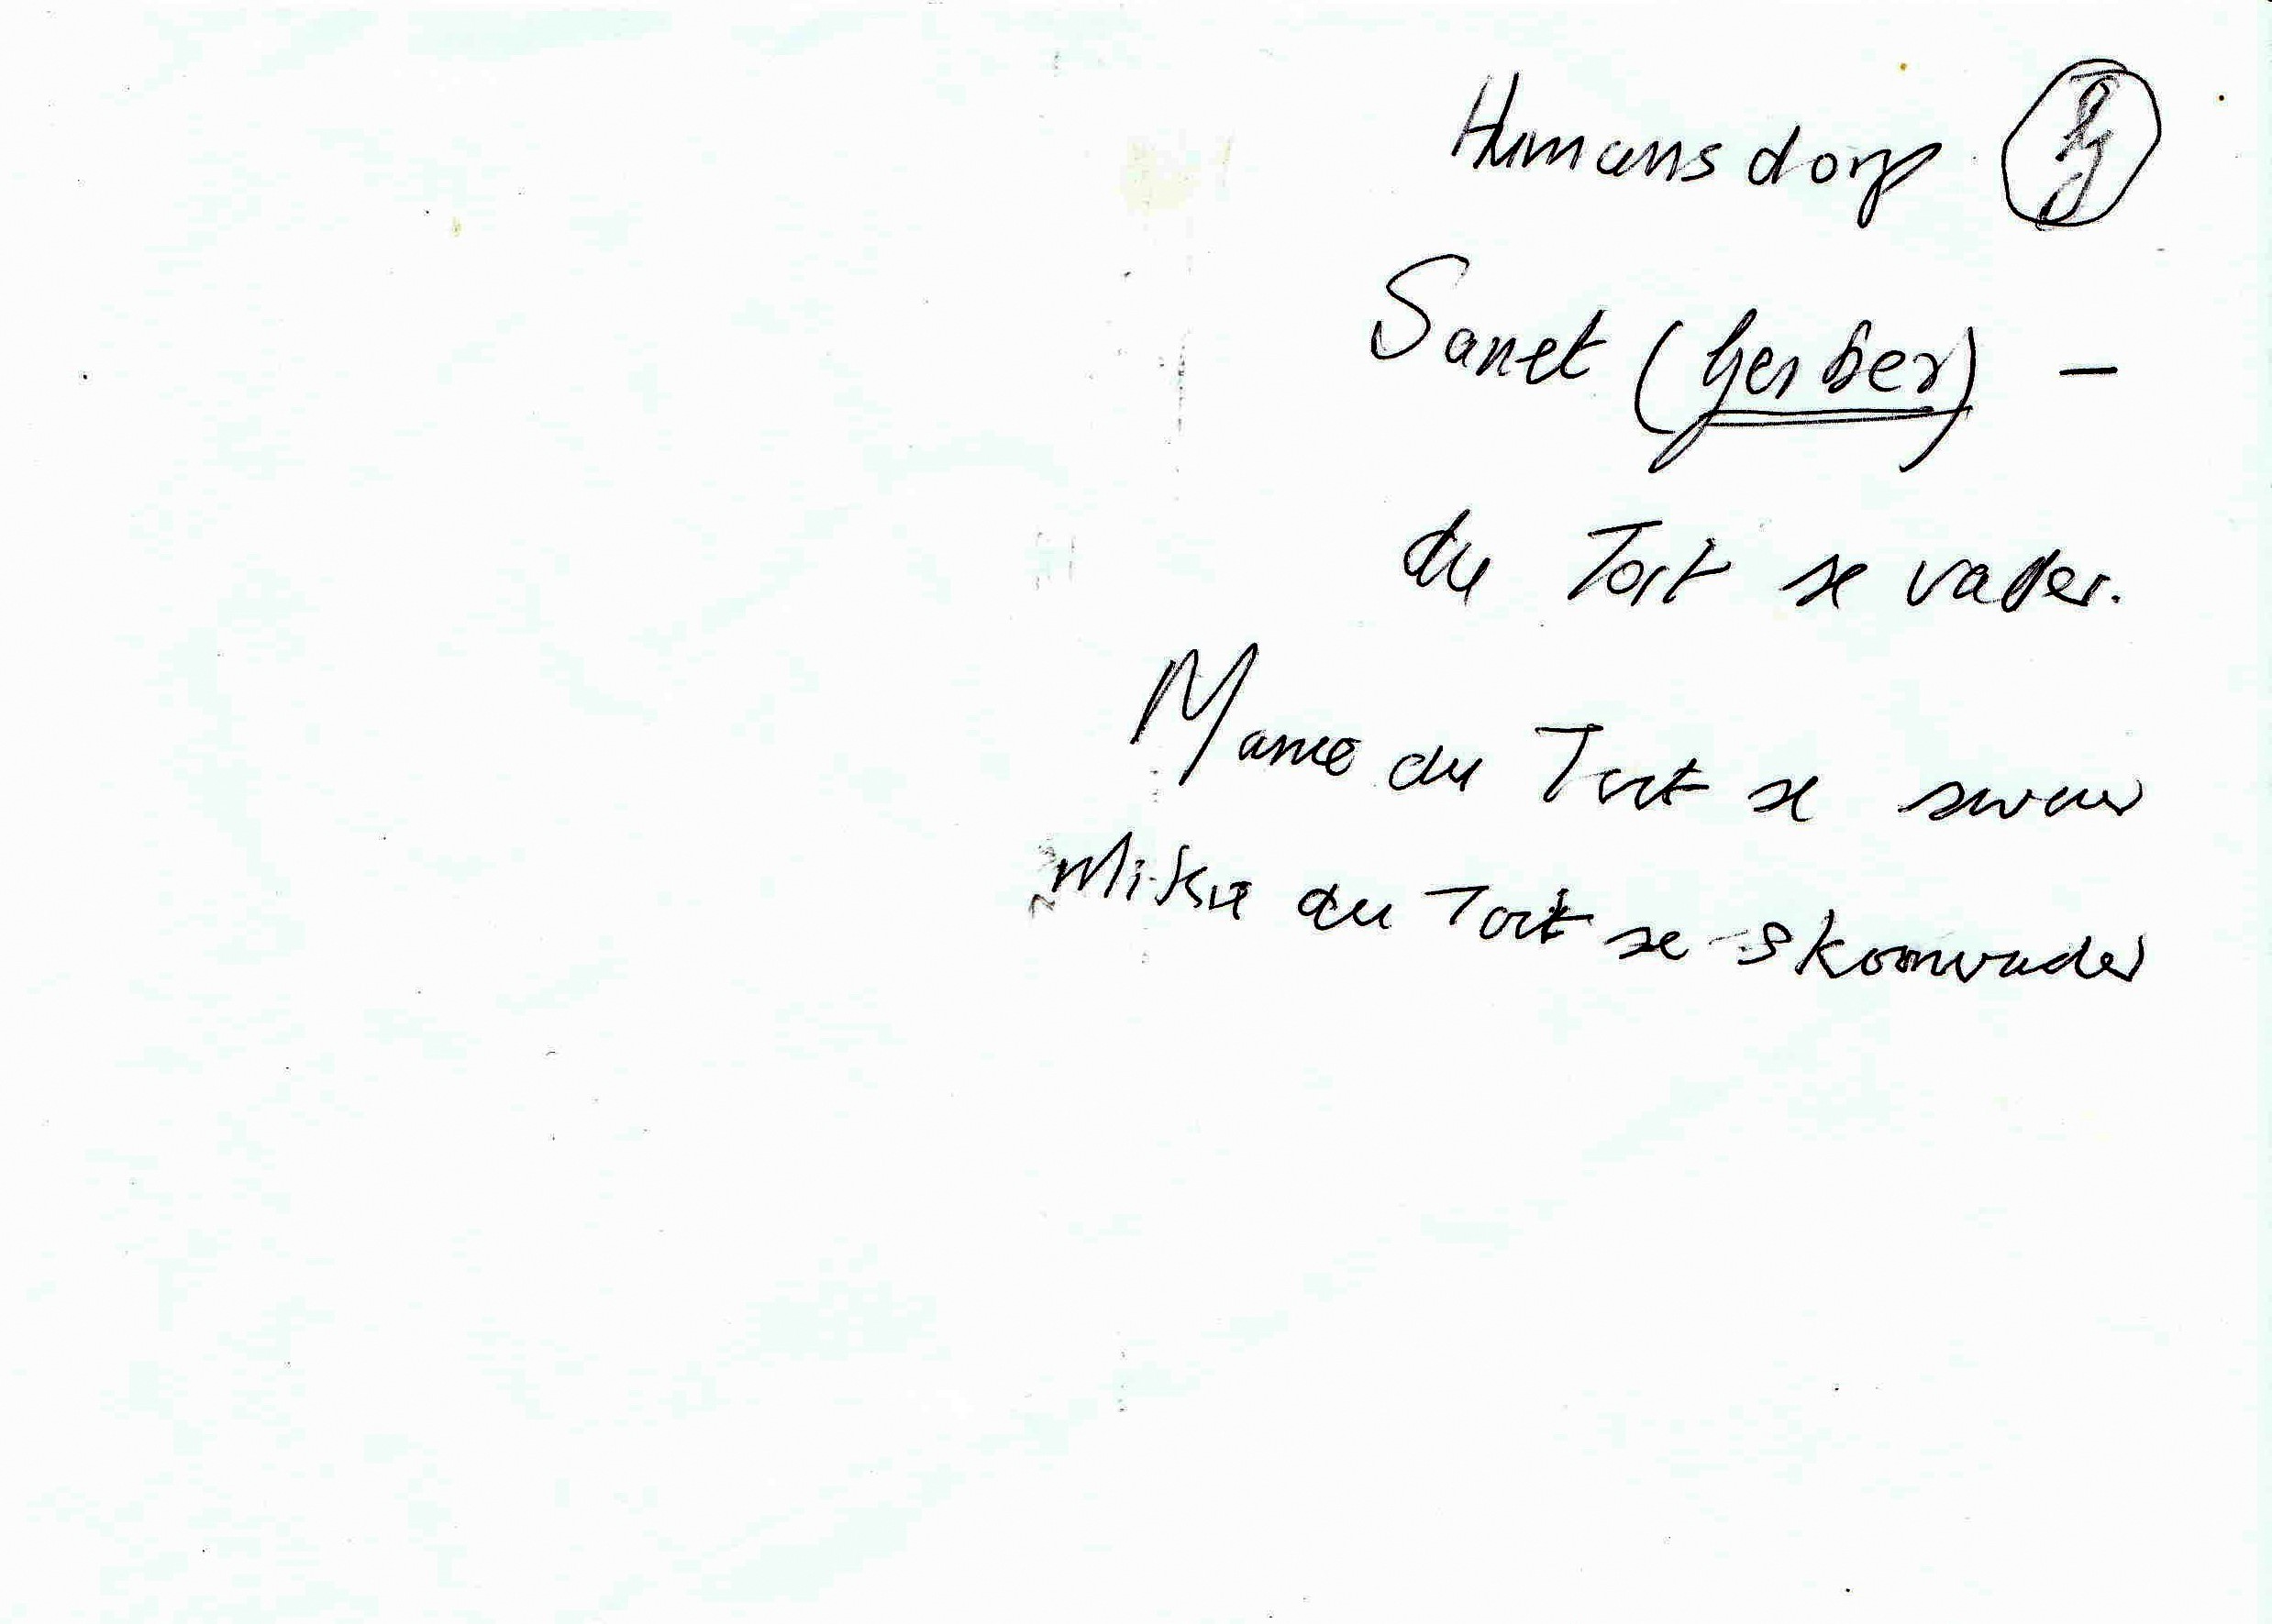 Humansdorp
Sanet (Gerber) -
du Toit se vader.
du Toit se swaer
du Toit se skoonvader